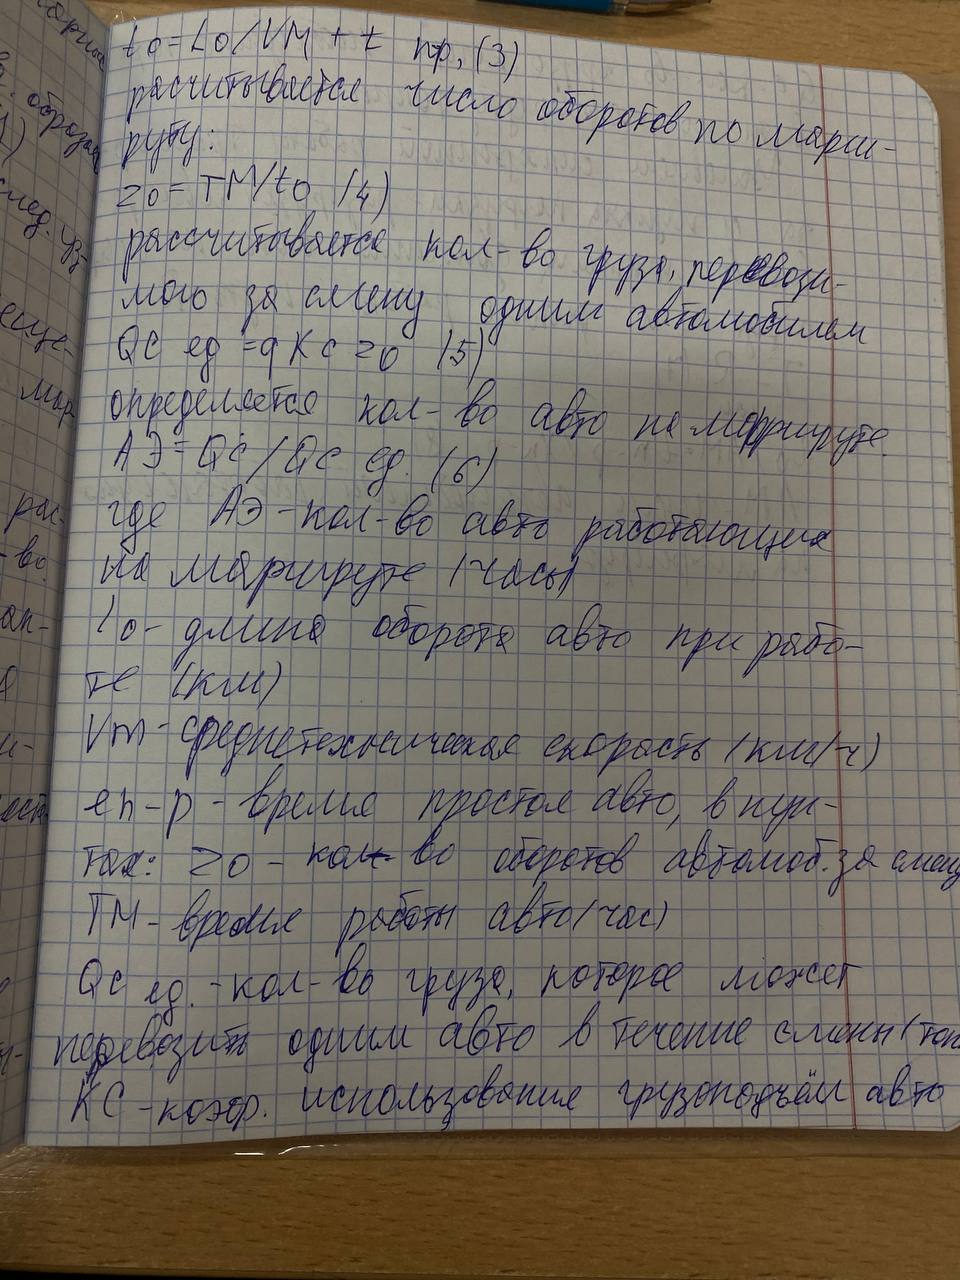 to = Lo/VM + t пр, (3)
расчитывается число оборотов по марш-
руту:
Zo = TM/to (4)
рассчитывается кол-во груза, перевози-
мого за смену одним автомобилем
QC ед = q Kc Zo (5)
определяется кол-во авто на маршруте.
АЭ = Qc / Qc ед. (6)
где АЭ - кол-во авто работающих
на маршруте (часы)
Lo - длина оборота авто при рабо-
те (км)
Vm - среднетехническая скорость (км/ч)
en-p - время простоя авто, в пун-
тах: Zo - кол-во оборотов автомоб. за смену
TM - время работы авто (час)
Qc ед. - кол-во груза, которое может
перевозить одним авто в течение смены (тон
KC - коэф. использование грузоподъём авто
марш
образ
след.
мар
рас-
во.
ап-